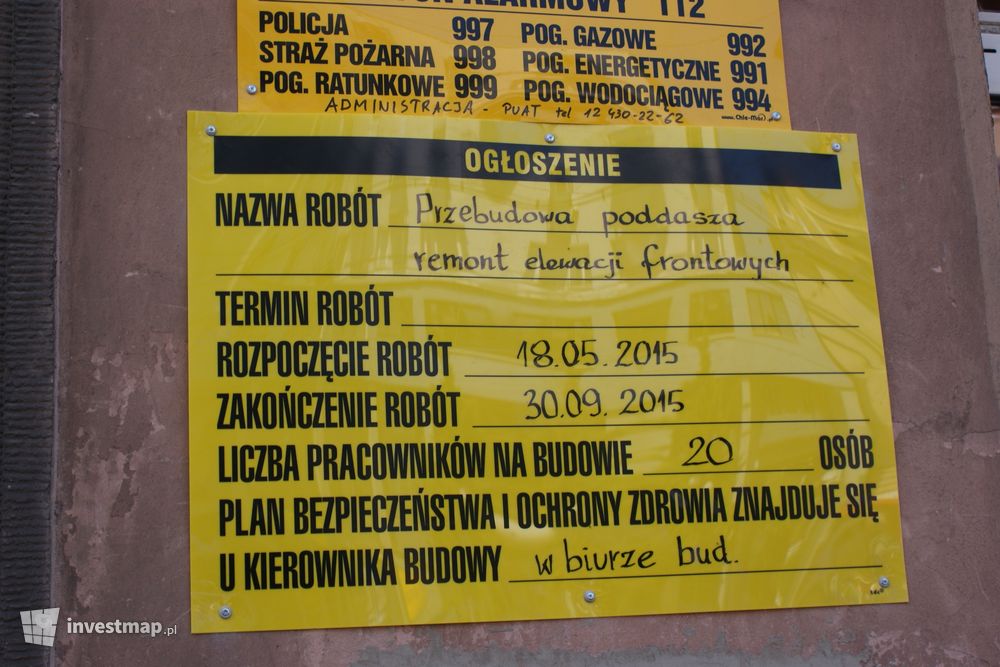 ALARMOWY 112
POLICJA 997 POG. GAZOWE 992
STRAŻ POŻARNA 998 POG. ENERGETYCZNE 991
POG. RATUNKOWE 999 POG. WODOCIĄGOWE 994
ADMINISTRACJA - PUAT tel 12 430-22-62
OGŁOSZENIE
NAZWA ROBÓT Przebudowa poddasza
remont elewacji frontowych
TERMIN ROBÓT
ROZPOCZĘCIE ROBÓT 18.05.2015
ZAKOŃCZENIE ROBÓT 30.09.2015
LICZBA PRACOWNIKÓW NA BUDOWIE 20 OSÓB
PLAN BEZPIECZEŃSTWA I OCHRONY ZDROWIA ZNAJDUJE SIĘ
U KIEROWNIKA BUDOWY w biurze bud.
investmap.pl